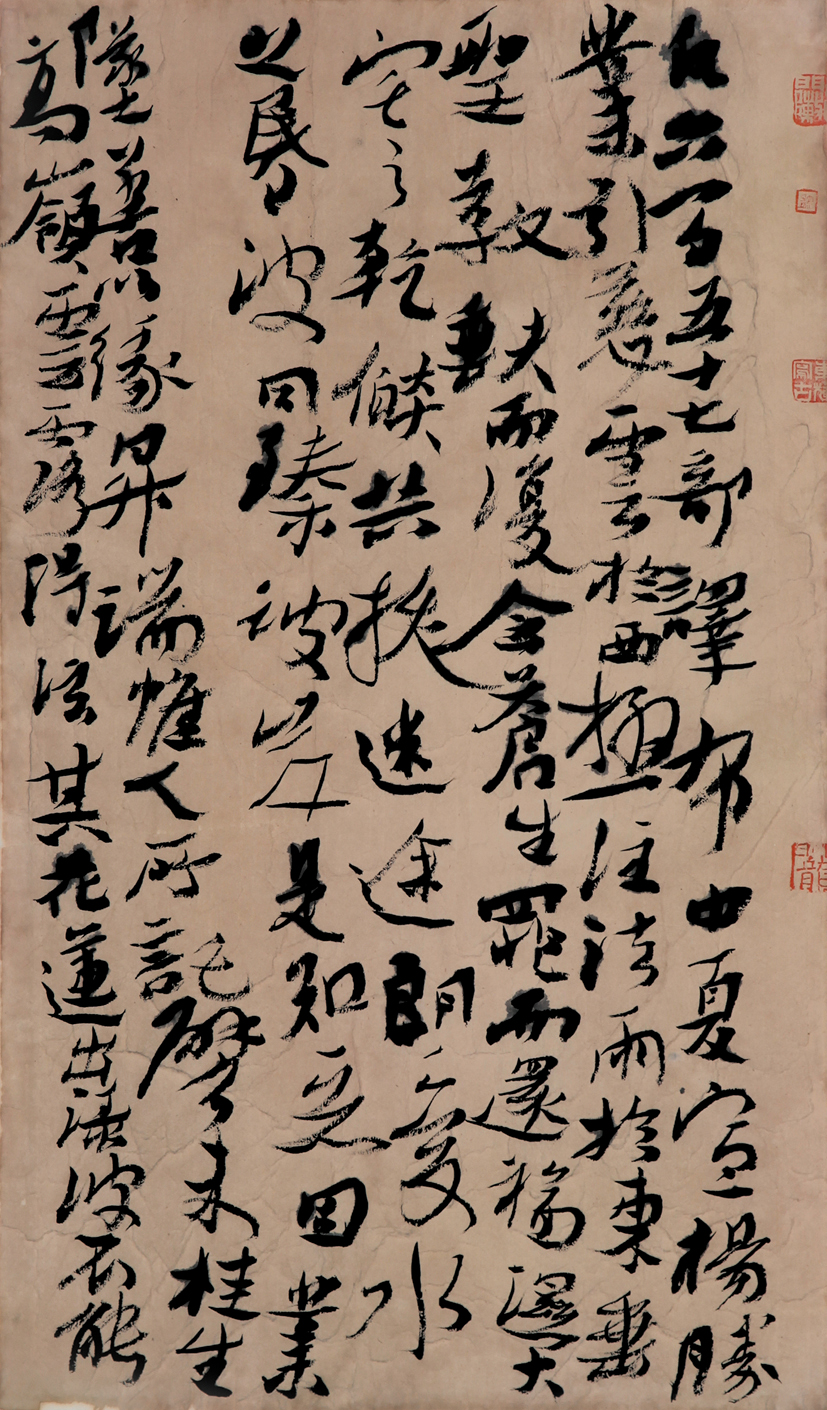 六百五十七部譯布中夏宣楊勝
業引慈雲於西極注法雨於東垂
聖教缺而復全蒼生罪而還福濕火
宅之乾燄共拔迷途朗愛水
之昏波同臻彼岸是知惡因業
墜善以緣昇端惟人所託譬夫桂生
高嶺雲露得泫其花蓮出淥波不能